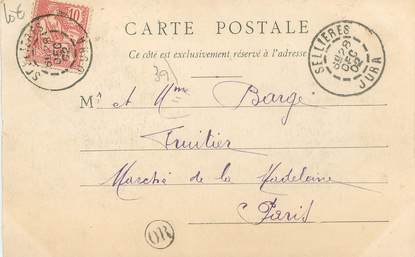 10€
10
CARTE POSTALE
Ce côté est exclusivement réservé à l'adresse
SELLIÈRES
28
DEC
02
JURA
39
Mr et Mme Bargé
Fruitier
Marché de la Madelaine
Paris
OR